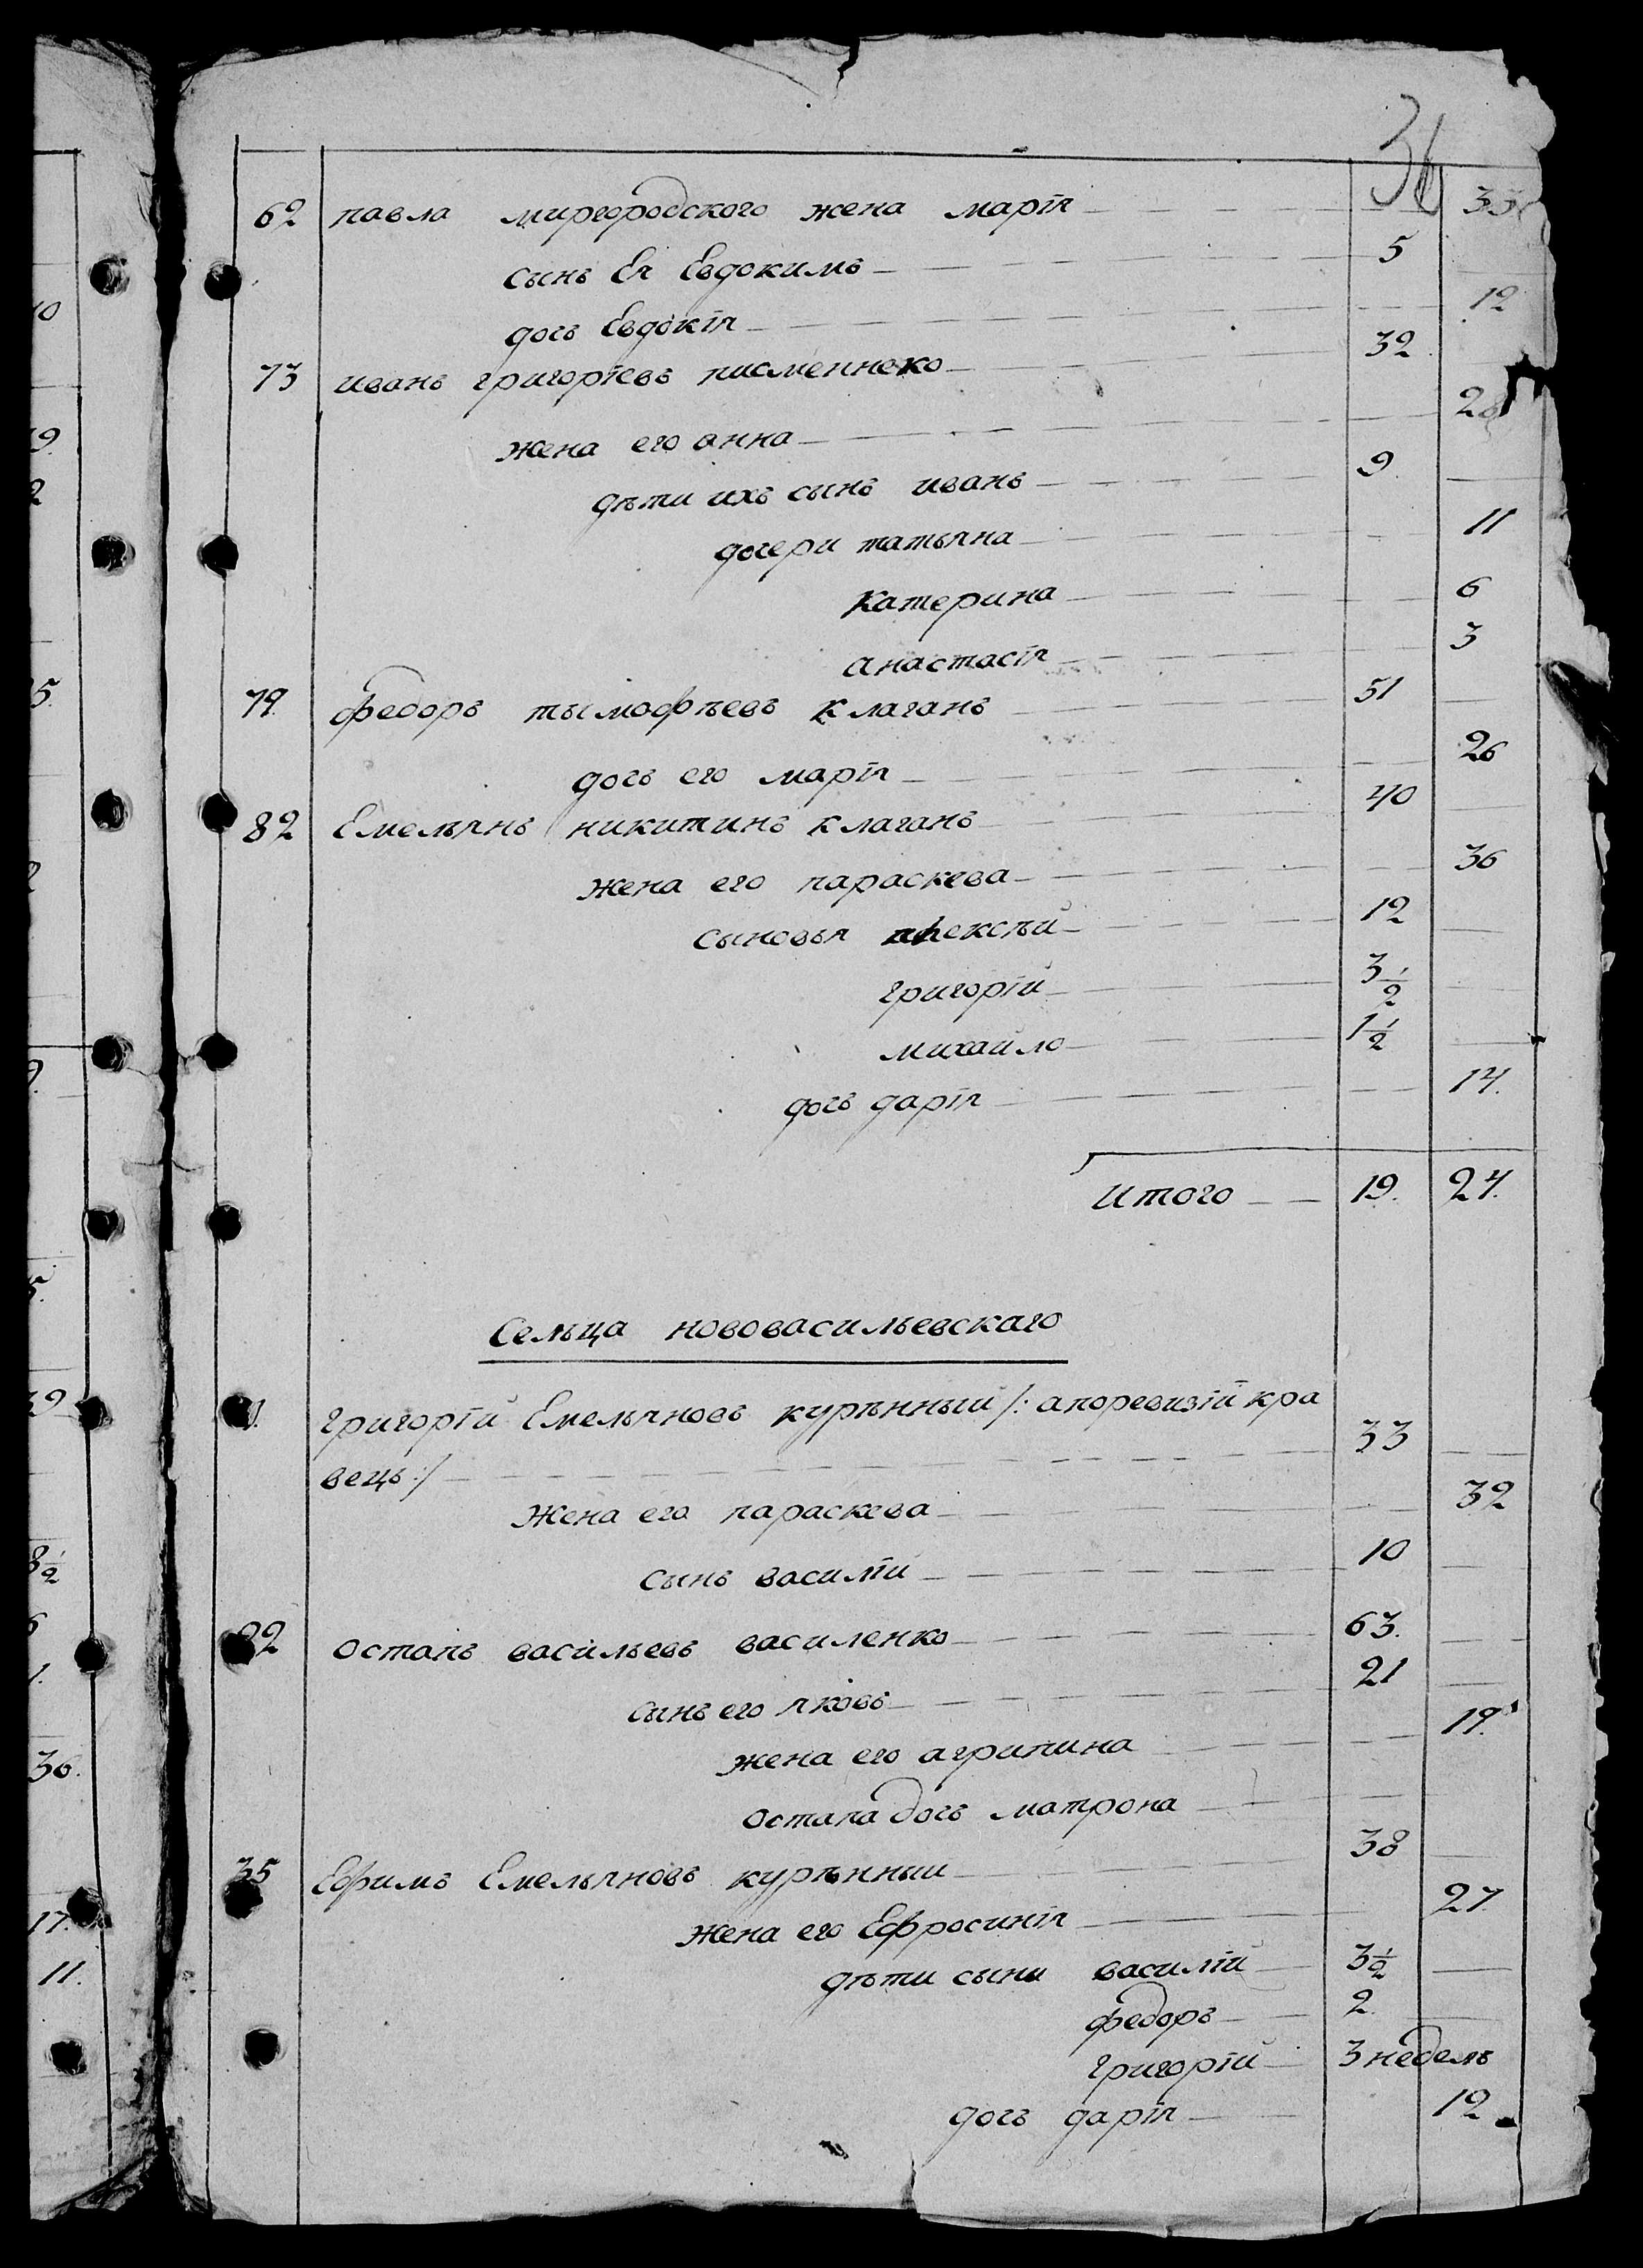 36
62 павла миргородского жена марія 35
сынъ Ея Евдокимъ 5
дочь Евдокія 12
73 иванъ григоріевъ писменнеко 32
жена его анна 28
дѣти ихъ сынъ иванъ 9
дочери татьяна 11
Катерина 6
анастасія 3
79. федоръ тымофѣевъ клаганъ 51
дочь его марія 26
82 Емельянъ никитинъ клаганъ 40
жена его параскева 36
сыновья алексѣй 12
григорій 3 1/2
михайло 1 1/2
дочь дарія 14.
итого 19. 24.
Сельца нововасильевскаго
григорій Емельяновъ курѣнный /: апоревизіи кра
вецъ :/ 33
жена его параскева 32
сынъ василій 10
остапъ васильевъ василенко 63.
сынъ его яковъ 21
жена его агрипина 19.
остапа дочь матрона
35 Ефимъ Емельяновъ курѣнный 38
жена его Ефросинія 27.
дѣти сыни василій 3 1/2
федоръ 2
григорій 3 недель
дочь дарія 12
10
19.
2
5.
2
9.
5.
39
8 1/2
6
1.
36.
17.
11.